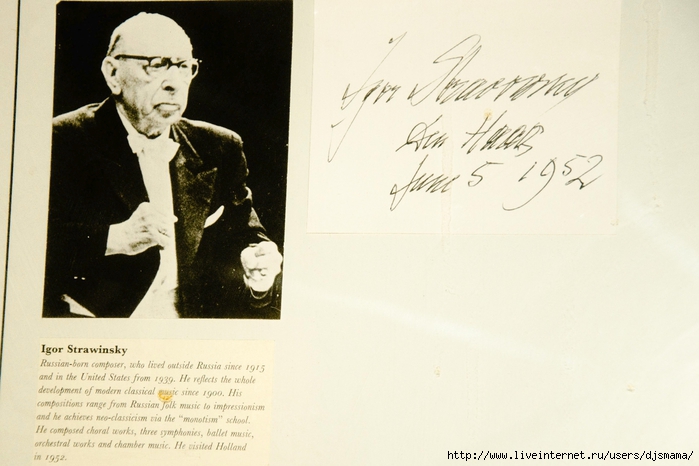 Igor Strawinsky
Den Haag
June 5 1952
Igor Strawinsky
Russian-born composer, who lived outside Russia since 1915
and in the United States from 1939. He reflects the whole
development of modern classical music since 1900. His
compositions range from Russian folk music to impressionism
and he achieves neo-classicism via the "monotism" school.
He composed choral works, three symphonies, ballet music,
orchestral works and chamber music. He visited Holland
in 1952.
http://www.liveinternet.ru/users/djsmama/